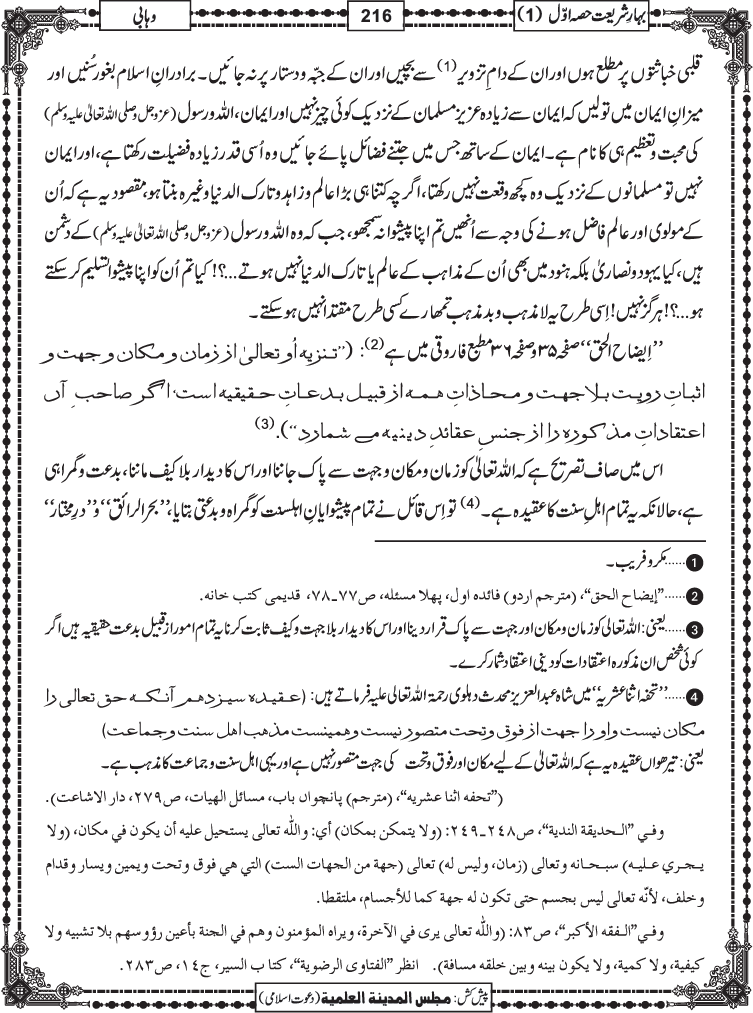 بہارِ شریعت حصہ اوّل (1)
216
وہابی
قلبی خباثتوں پر مطلع ہوں اور ان کے دامِ تزویر(1) سے بچیں اور ان کے جبّہ و دستار پر نہ جائیں۔ برادرانِ اسلام بغور سُنیں اور
میزانِ ایمان میں تولیں کہ ایمان سے زیادہ عزیز مسلمان کے نزدیک کوئی چیز نہیں اور ایمان، اللہ و رسول (عزوجل وصلی اللہ تعالیٰ علیہ وسلم)
کی محبت و تعظیم ہی کا نام ہے۔ ایمان کے ساتھ جس میں جتنے فضائل پائے جائیں وہ اُسی قدر زیادہ فضیلت رکھتا ہے، اور ایمان
نہیں تو مسلمانوں کے نزدیک وہ کچھ وقعت نہیں رکھتا، اگرچہ کتنا ہی بڑا عالم و زاہد و تارک الدنیا وغیرہ بنتا ہو، مقصود یہ ہے کہ اُن
کے مولوی اور عالم فاضل ہونے کی وجہ سے اُنھیں تم اپنا پیشوا نہ سمجھو، جب کہ وہ اللہ و رسول (عزوجل وصلی اللہ تعالیٰ علیہ وسلم) کے دشمن
ہیں، کیا یہود و نصاریٰ بلکہ ہنود میں بھی اُن کے مذاہب کے عالم یا تارک الدنیا نہیں ہوتے ...؟! کیا تم اُن کو اپنا پیشوا تسلیم کر سکتے
ہو...؟! ہرگز نہیں! اِسی طرح یہ لا مذہب و بد مذہب تمھارے کسی طرح مقتدا نہیں ہو سکتے۔
’’اِیضاح الحق‘‘ صفحہ ۳۵ و صفحہ ۳۶ مطبع فاروقی میں ہے(2): (’’تنزیہ اُو تعالیٰ از زمان و مکان و جہت و
اثباتِ رویت بلا جہت و محاذاتِ ہمہ از قبیل بدعاتِ حقیقیہ است، اگر صاحبِ آں
اعتقاداتِ مذکورہ را از جنسِ عقائدِ دینیہ مے شمارد‘‘)۔(3)
اس میں صاف تصریح ہے کہ اللہ تعالیٰ کو زمان و مکان و جہت سے پاک جاننا اور اس کا دیدار بلا کیف ماننا، بدعت و گمراہی
ہے، حالانکہ یہ تمام اہلِ سنت کا عقیدہ ہے۔(4) تو اِس قائل نے تمام پیشوایانِ اہلسنت کو گمراہ و بدعتی بتایا، ’’بحر الرائق‘‘ و ’’درِ مختار‘‘
1 ......مکر و فریب۔
2 ......’’إيضاح الحق‘‘، (مترجم اردو) فائدہ اول، پھلا مسئلہ، ص۷۷۔۷۸، قدیمی کتب خانہ.
3 ......یعنی: اللہ تعالیٰ کو زمان و مکان اور جہت سے پاک قرار دینا اور اس کا دیدار بلا جہت و کیف ثابت کرنا یہ تمام امور از قبیل بدعت حقیقیہ ہیں اگر
کوئی شخص ان مذکورہ اعتقادات کو دینی اعتقاد شمار کرے۔
4 ......’’تحفہ اثنا عشریہ‘‘ میں شاہ عبد العزیز محدث دہلوی رحمۃ اللہ تعالیٰ علیہ فرماتے ہیں: (عقیدہ سیزدھم آنکہ حق تعالی را
مکان نیست و او را جہت از فوق و تحت متصور نیست و ھمینست مذھب اھل سنت و جماعت)
یعنی: تیرھواں عقیدہ یہ ہے کہ اللہ تعالیٰ کے لیے مکان اور فوق و تحت کی جہت متصور نہیں ہے اور یہی اہل سنت و جماعت کا مذہب ہے۔
(’’تحفه اثنا عشريه‘‘، (مترجم) پانچواں باب، مسائل الهيات، ص۲۷۹، دار الاشاعت).
وفي ’’الحديقة الندية‘‘، ص۲۴۸۔۲۴۹: (ولا يتمكن بمكان) أي: والله تعالى يستحيل عليه أن يكون في مكان، (ولا
يجري عليه) سبحانه وتعالى (زمان، وليس له) تعالى (جهة من الجهات الست) التي هي فوق وتحت ويمين ويسار وقدام
وخلف، لأنّه تعالى ليس بجسم حتى تكون له جهة كما للأجسام، ملتقطا.
وفي’’الفقه الأكبر‘‘، ص۸۳: (والله تعالى يرى في الآخرة، ويراه المؤمنون وهم في الجنة بأعين رؤوسهم بلا تشبيه ولا
كيفية، ولا كمية، ولا يكون بينه وبين خلقه مسافة). انظر ’’الفتاوى الرضوية‘‘، كتاب السير، ج۱۴، ص۲۸۳.
پیش کش: مجلس المدینۃ العلمیۃ (دعوت اسلامی)